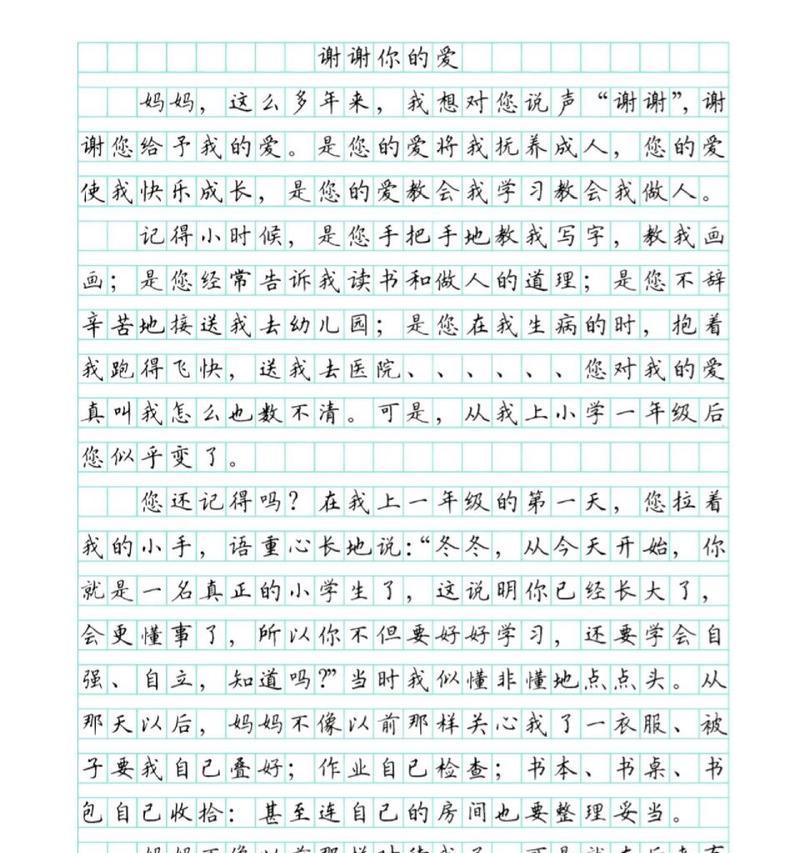 谢谢你的爱
妈妈，这么多年来，我想对您说声“谢谢”，谢
谢您给予我的爱。是您的爱将我抚养成人，您的爱
使我快乐成长，是您的爱教会我学习教会我做人。
记得小时候，是您手把手地教我写字，教我画
画；是您经常告诉我读书和做人的道理；是您不辞
辛苦地接送我去幼儿园；是您在我生病的时，抱着
我跑得飞快，送我去医院、、、、、、您对我的爱
真叫我怎么也数不清。可是，从我上小学一年级后
您似乎变了。
您还记得吗？在我上一年级的第一天，您拉着
我的小手，语重心长地说：“冬冬，从今天开始，你
就是一名真正的小学生了，这说明你已经长大了，
会更懂事了，所以你不但要好好学习，还要学会自
强、自立，知道吗？”当时我似懂非懂地点点头。从
那天以后，妈妈不像以前那样关心我了一衣服、被
子要我自己叠好；作业自己检查；书本、书桌、书
包自己收拾：甚至连自己的房间也要整理妥当。